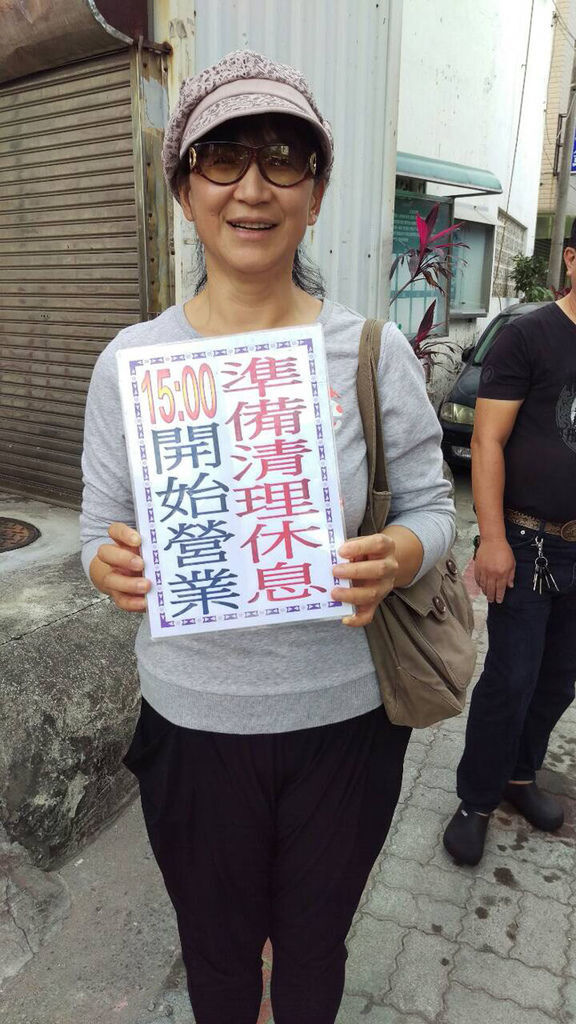 準備清理休息
15:00
開始營業